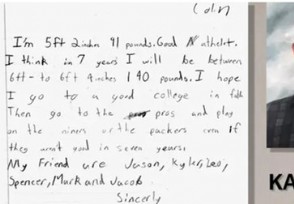 Colin
I'm 5ft 2inches 91 pounds. Good athelet.
I think in 7 years I will be between
6ft - to 6ft 4inches 140 pounds. I hope
I go to a good college in
Then go to the pros and play
on the niners or the packers even if
they aren't good in seven years.
My Friend are Jason, kyler, leo,
Spencer, Mark and Jacob
Sincerly
KA